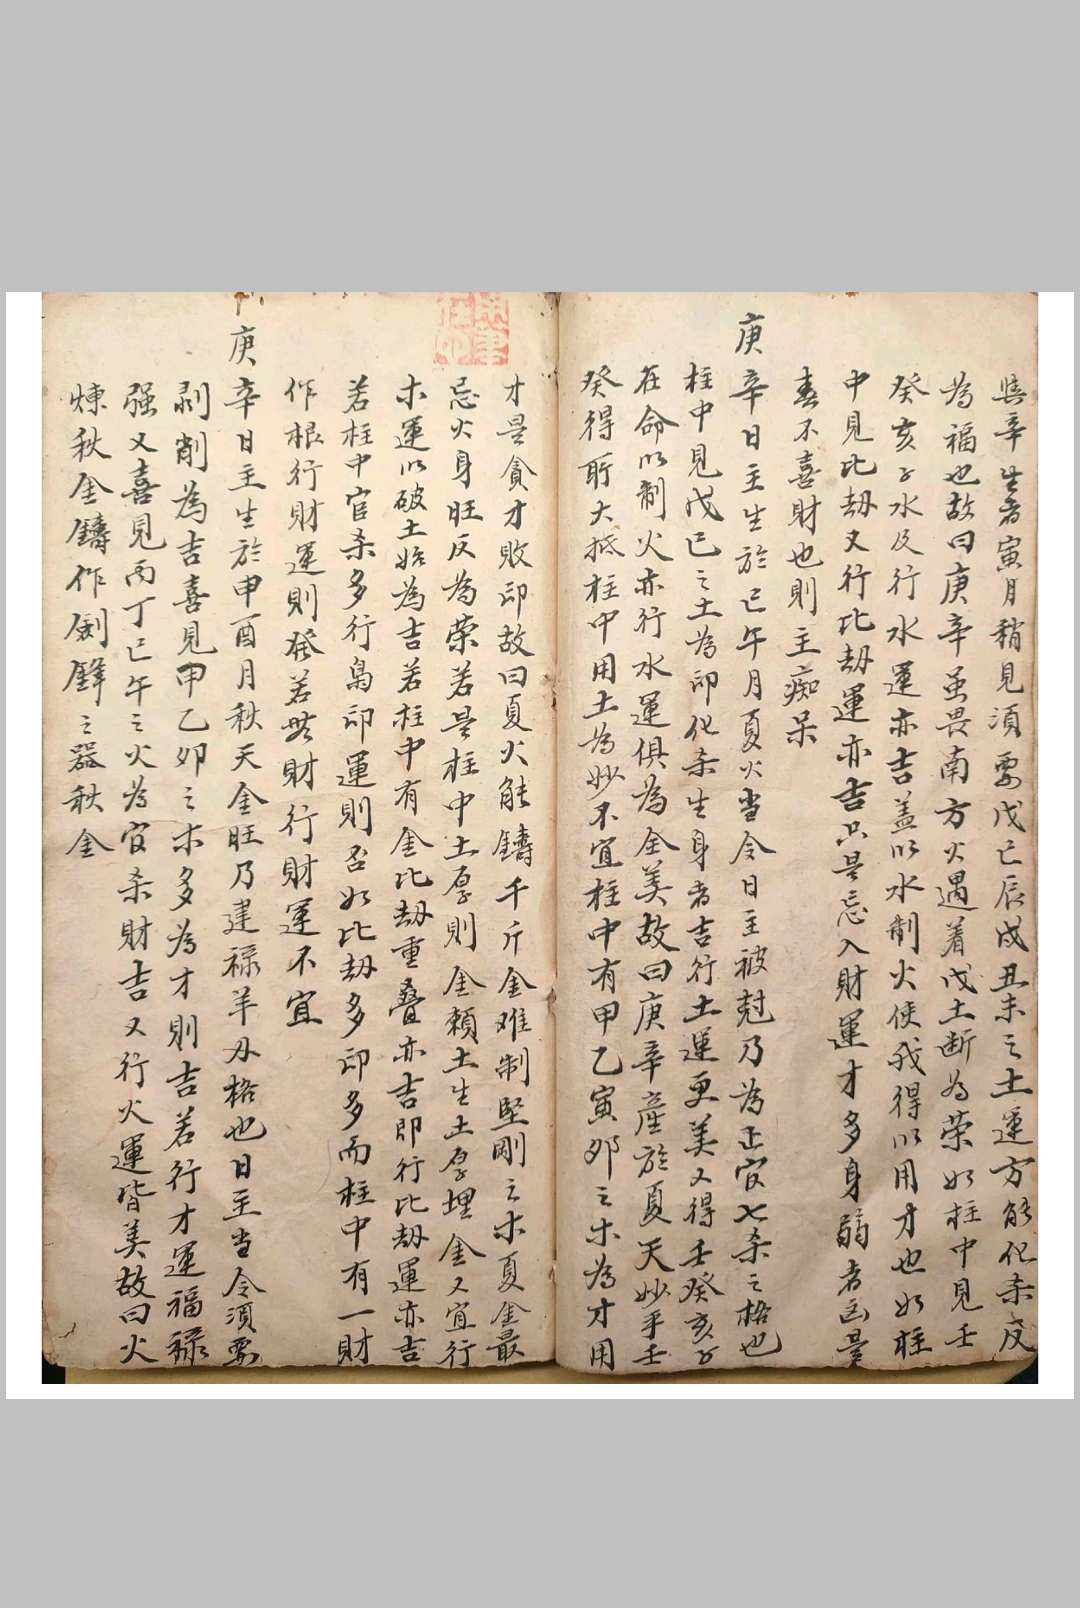 辛生者寅月稍見須要戊己辰戌丑未之土運方能化杀反
為福也故曰庚辛虽畏南方火遇着戊土断為荣如柱中見壬
癸亥子水及行水運亦吉盖以水制火使我得以用才也如柱
中見比劫又行比劫運亦吉只是忌入財運才多身弱者凶是
春不喜財也則主痴呆
庚辛日主生於巳午月夏火当令日主被尅乃為正官七杀之格也
柱中見戊己之土為印化杀生身者吉行土運更美又得壬癸亥子
在命以制火亦行水運俱為全美故曰庚辛産於夏天妙乎壬
癸得所大抵柱中用土為妙不宜柱中有甲乙寅卯之木為才用
才是貪才敗印故曰夏火能鑄千斤金难制堅剛之木夏金最
忌火身旺反為荣若是柱中土厚則金頼土生土厚埋金又宜行
木運以破土始為吉若柱中有金比劫重叠亦吉即行比劫運亦吉
若柱中官杀多行梟印運則否如比劫多印多而柱中有一財
作根行財運則發若無財行財運不宜
庚辛日主生於申酉月秋天金旺乃建禄羊刃格也日主当令須要
剥削為吉喜見甲乙卯之木多為才則吉若行才運福禄
强又喜見丙丁巳午之火為官杀財吉又行火運皆美故曰火
煉秋金鑄作劍鋒之器秋金